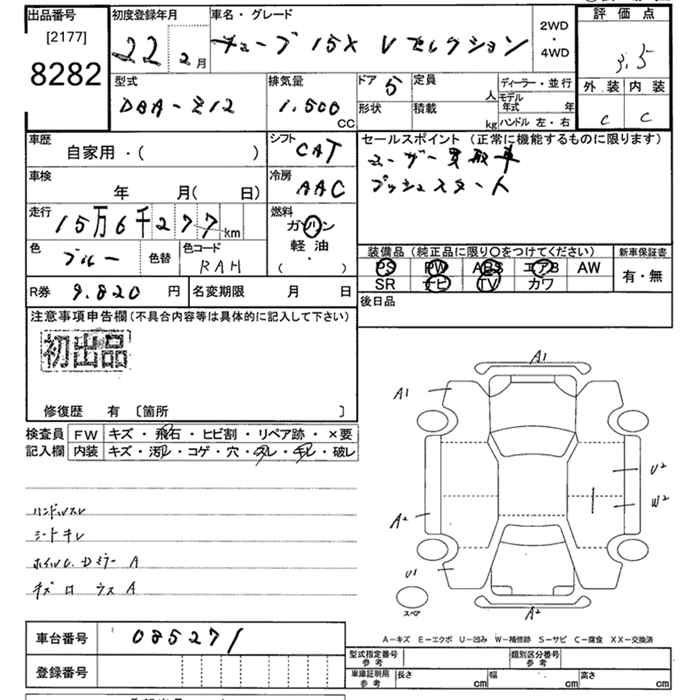 出品番号
[2177]
8282
初度登録年月
22 2月
車名・グレード
キューブ 15X Vセレクション
2WD
・
4WD
評価点
3.5
外装 内装
C C
型式
DBA-Z12
排気量
1.500
CC
ドア 5
定員
人
形状
積載
kg
ディーラー・並行
モデル年式 年
ハンドル 左・右
車歴
自家用・( )
シフト
CAT
車検
年 月( 日)
冷房
AAC
走行
15万6千277km
燃料
ガソリン
軽油
・
( )
色
ブルー
色替
色コード
RAH
R券 9.820 円
名変期限 月 日
セールスポイント (正常に機能するものに限ります)
ユーザー買取車
プッシュスタート
装備品 (純正品に限り〇をつけてください)
PS PW ABS エアB AW
SR ナビ TV カワ
新車保証書
有・無
後日品
注意事項申告欄(不具合内容等は具体的に記入して下さい)
初出品
修復歴 有 〔箇所 〕
検査員
記入欄
FW キズ・飛石・ヒビ割・リペア跡・×要
内装 キズ・汚レ・コゲ・穴・スレ・キレ・破レ
ハンドルスレ
シートキレ
A
A
A1
A1
A2
U1
U2
W2
A2
スペア
A-キズ E-エクボ U-凹み W-補修跡 S-サビ C-腐食 XX-交換済
車台番号 085271
登録番号
型式指定番号
参考
類別区分番号
参考
車庫証明用
参考
長さ cm 幅 cm 高さ cm